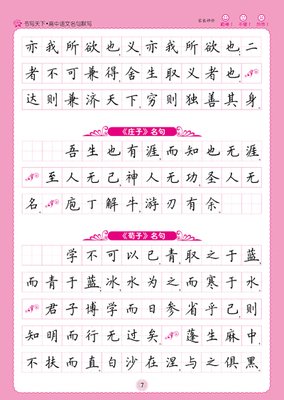 书写天下·高中语文名句默写
亦我所欲也义亦我所欲也二
者不可兼得舍生取义者也
达则兼济天下穷则独善其身
《庄子》名句
吾生也有涯而知也无涯
至人无己神人无功圣人无
名庖丁解牛游刃有余
《荀子》名句
学不可以已青取之于蓝
而青于蓝冰水为之而寒于水
君子博学而日参省乎己则
知明而行无过矣蓬生麻中
不扶而直白沙在涅与之俱黑
7